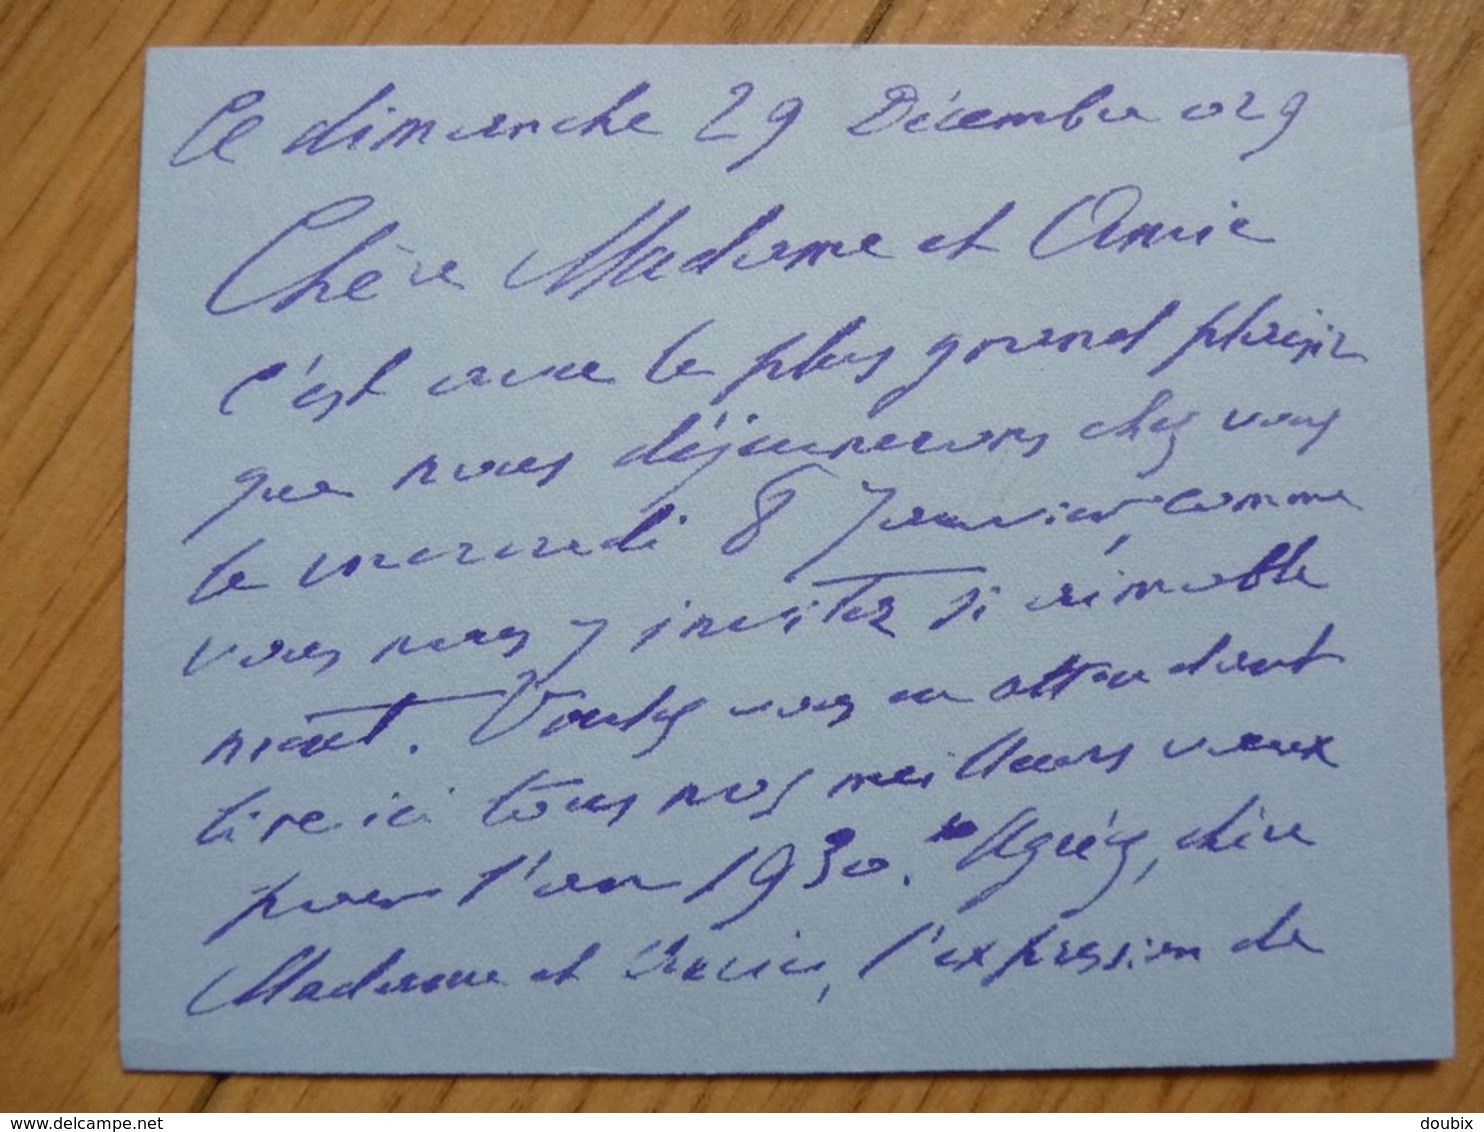 Ce dimanche 29 Décembre 029
Chère Madame et Amie
C'est avec le plus grand plaisir
que nous déjeunerons chez vous
le mercredi 8 Janvier, comme
vous nous y invitez si aimable
ment. Voulez vous en attendant
lire ici tous nos meilleurs vœux
pour l'an 1930. Agréez, chère
Madame et Amie, l'expression de
delcampe.net
doubix